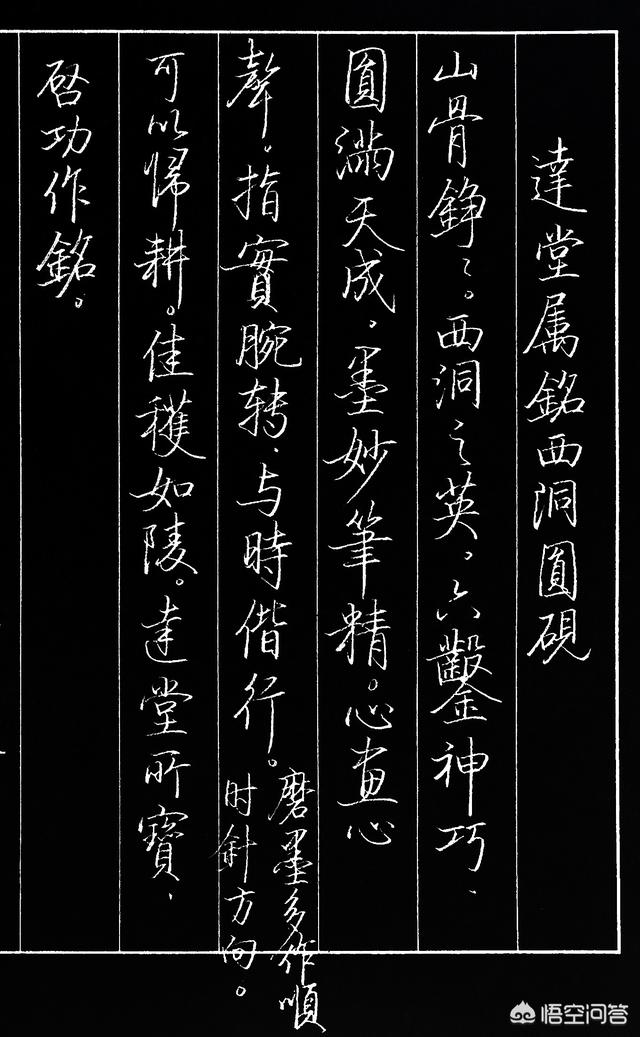 達堂属銘西洞圓硯
山骨錚〻。西洞之英。六鑿神巧、
圓滿天成。墨妙筆精。心畫心
聲。指實腕转、与時偕行。
磨墨多作順
时針方向。
可以歸耕。佳穫如陵。達堂所寶、
啓功作銘。
悟空问答